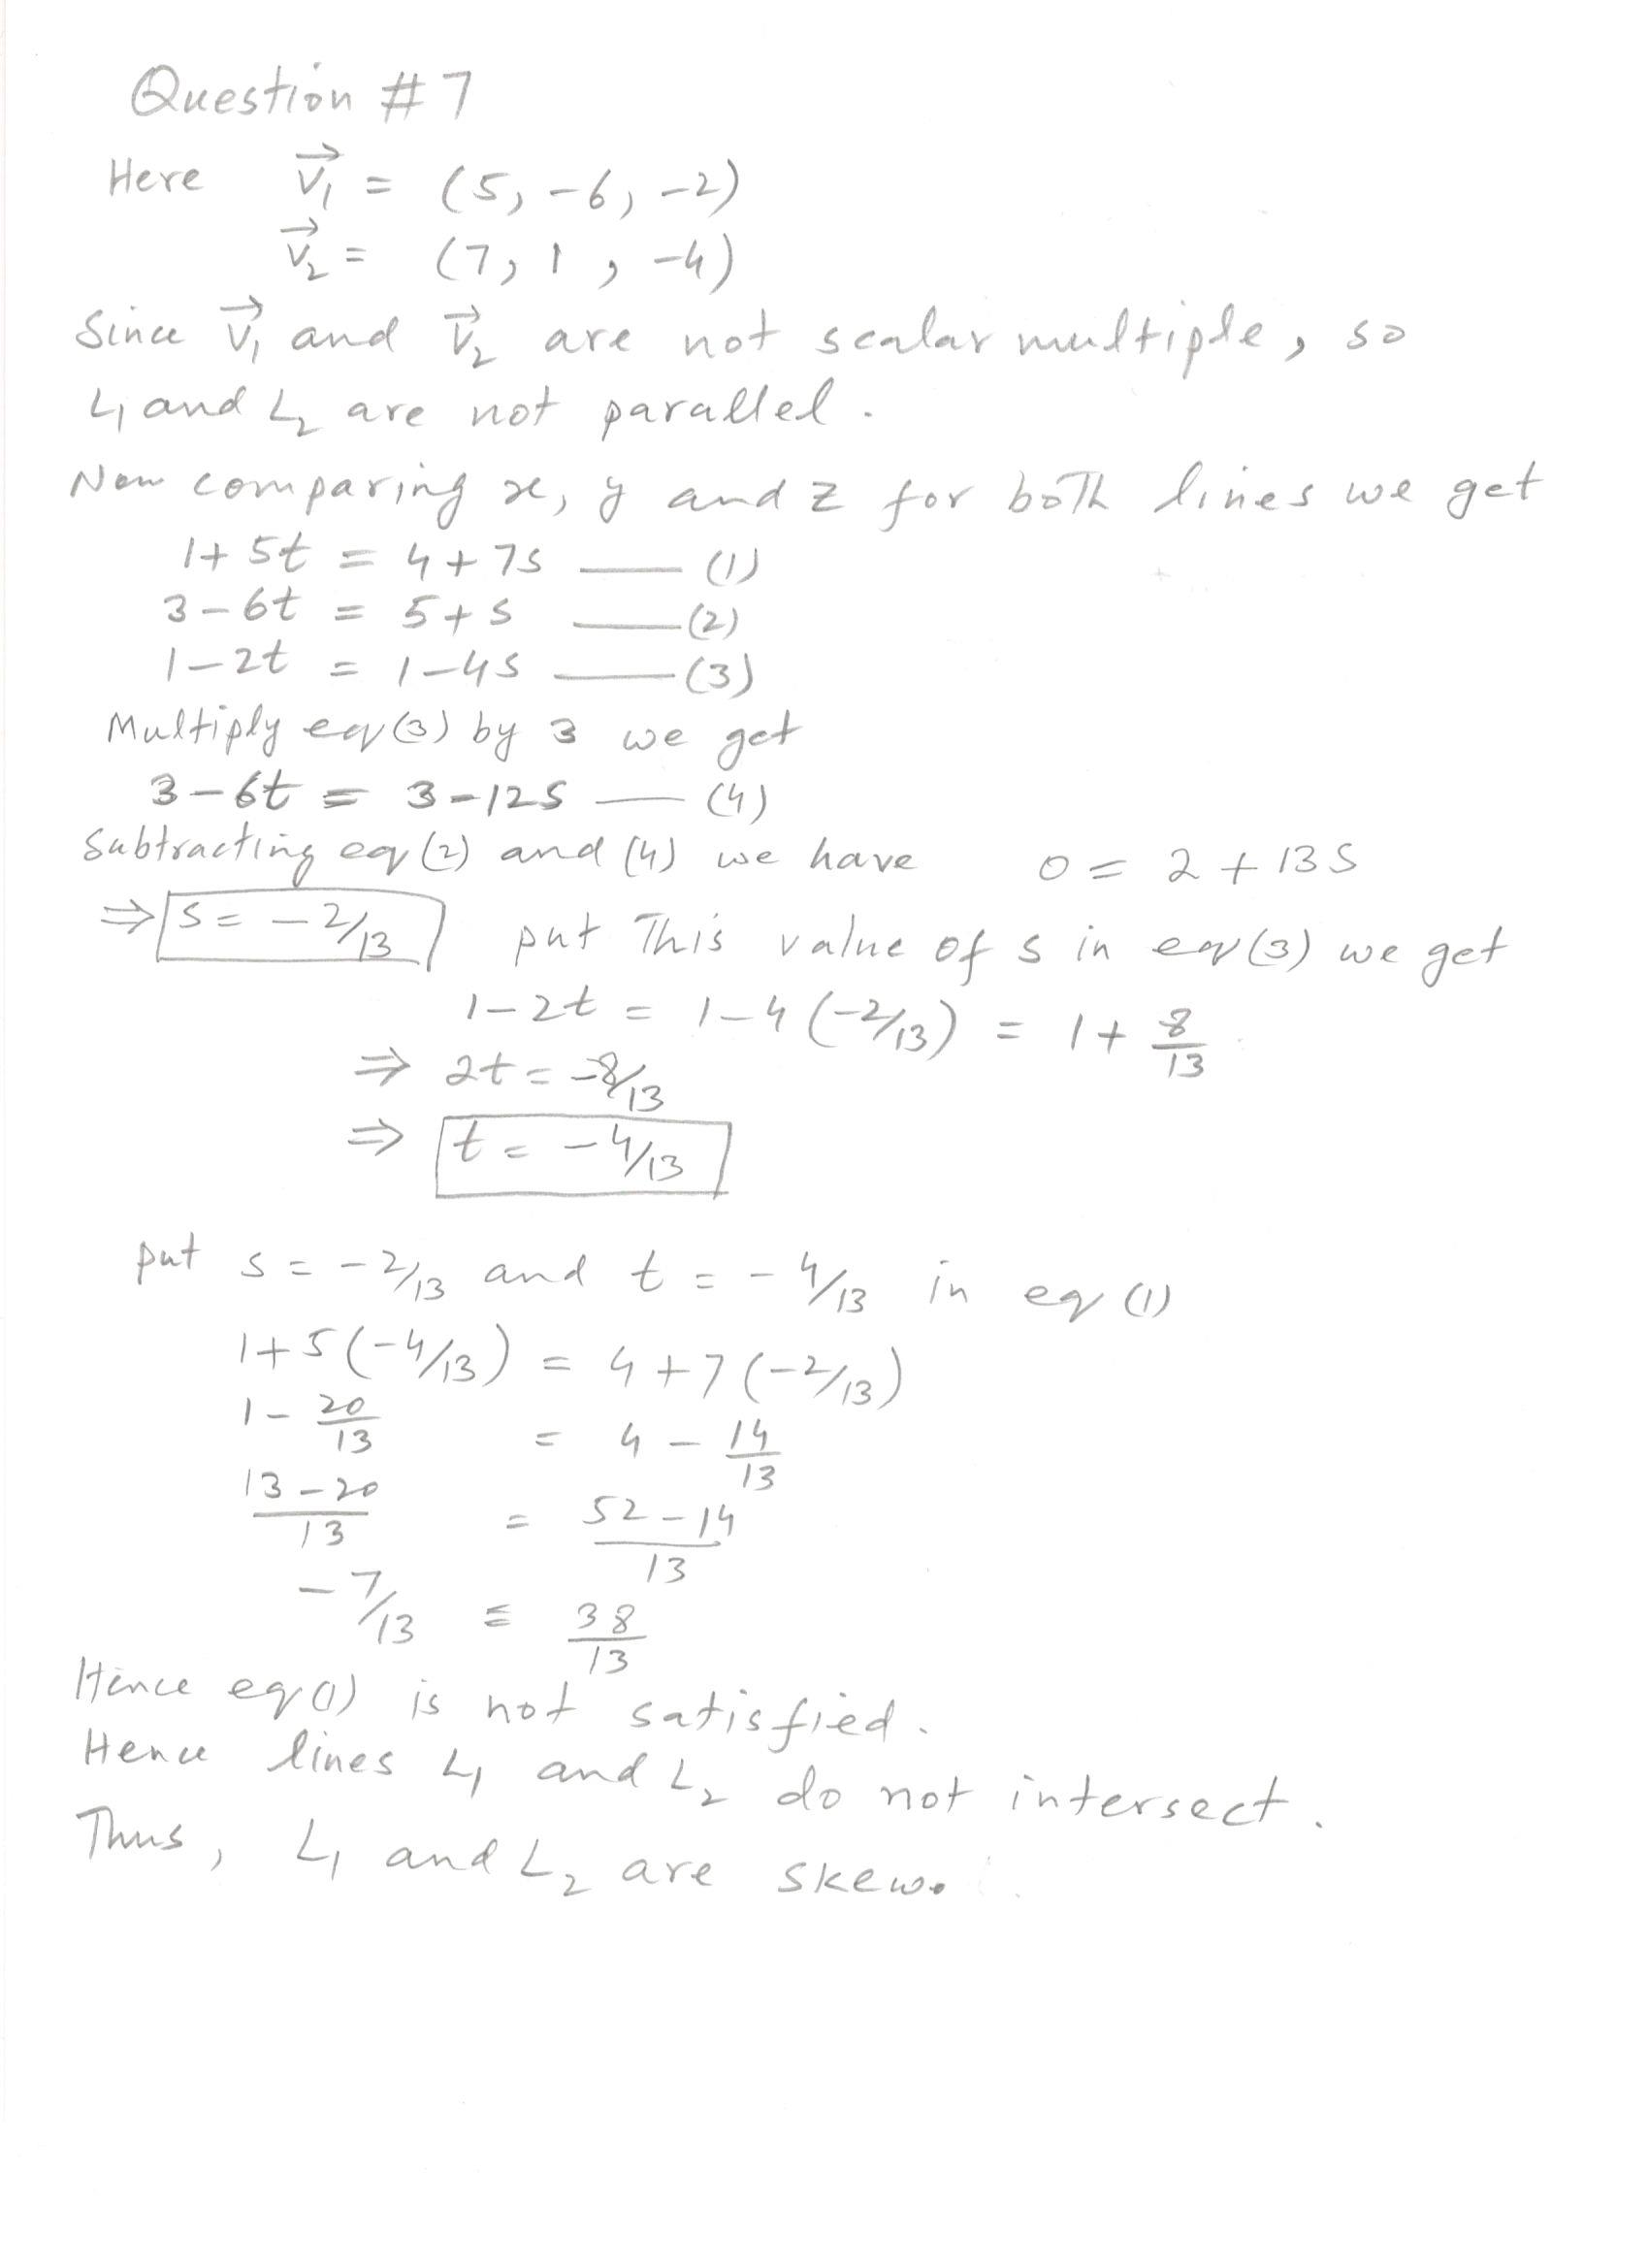 Question #7
Here v₁⃗ = (5, -6, -2)
v₂⃗ = (7, 1, -4)
Since v₁⃗ and v₂⃗ are not scalar multiple, so
L₁ and L₂ are not parallel.
Now comparing x, y and z for both lines we get
1+5t = 4+7s —— (1)
3-6t = 5+s —— (2)
1-2t = 1-4s —— (3)
Multiply eq(3) by 3 we get
3-6t = 3-12s —— (4)
Subtracting eq(2) and (4) we have 0 = 2+13s
⇒ s = -2/13 put This value of s in eq(3) we get
1-2t = 1-4(-2/13) = 1+8/13
⇒ 2t = -8/13
⇒ t = -4/13
put s = -2/13 and t = -4/13 in eq(1)
1+5(-4/13) = 4+7(-2/13)
1-20/13 = 4-14/13
13-20/13 = 52-14/13
-7/13 = 38/13
Hence eq(1) is not satisfied.
Hence lines L₁ and L₂ do not intersect.
Thus, L₁ and L₂ are skew.